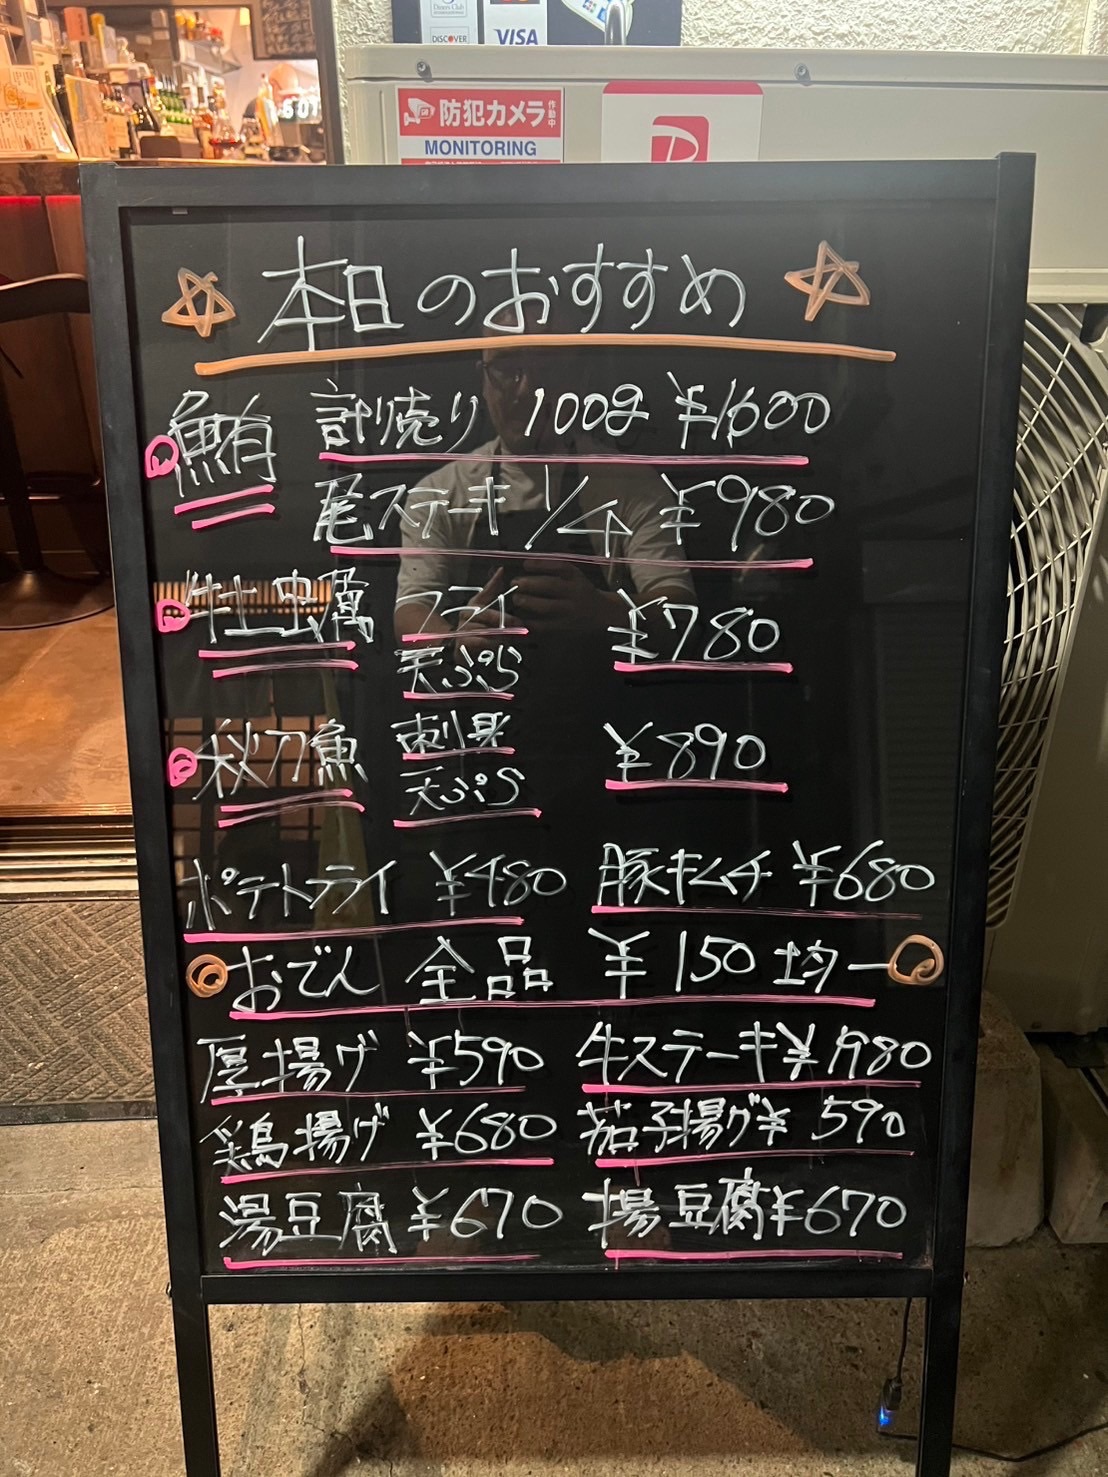 Diners Club
DISCOVER
VISA
防犯カメラ 作動中
MONITORING
本日のおすすめ
鮪 計り売り 100g ¥1600
尾ステーキ 1/4 ¥980
牡蛎 フライ ¥780
天ぷら
秋刀魚 刺身 ¥890
天ぷら
ポテトフライ ¥480 豚キムチ ¥680
おでん 全品 ¥150 均一
厚揚げ ¥590 牛ステーキ ¥1980
鶏揚げ ¥680 茄子揚げ ¥590
湯豆腐 ¥670 揚豆腐 ¥670